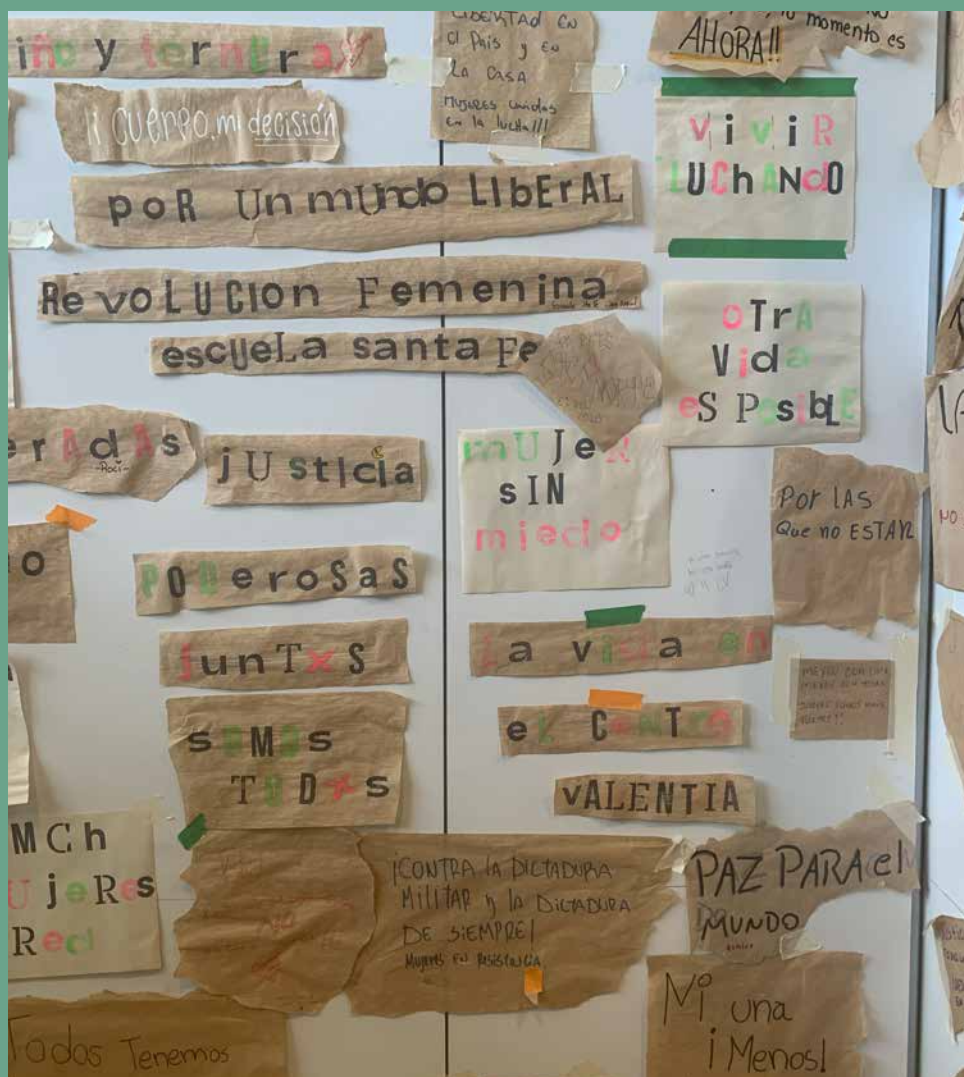 iño y ternura
LIBERTAD EN
el País y en
La CASA
MUJERES unidas
en la lucha!!!
momento es
AHORA!!
cuerpo, mi decisión
ViViR
LUChANdO
poR Un mUndo LIbErAL
ReVoLUCIon Femenina
escUeLa santa Fe
oTrA
Vida
eS PosibLE
erAdAs
-Roci-
jUstIcia
mUJeR
sIN
miedo
Por LAS
Que no ESTAN
o
PODeroSaS
JunTxS
La vida en
eL CeNTro
sOMOs
TODxs
vALENTIA
MCh
UjeRes
Red
¡CONTRA la DICTADURA
MILITAR y la DICTADURA
DE SIEMPRE!
Mujeres en Resistencia
PAZ PARA el
MUNDO
Todos Tenemos
Ni una
¡Menos!